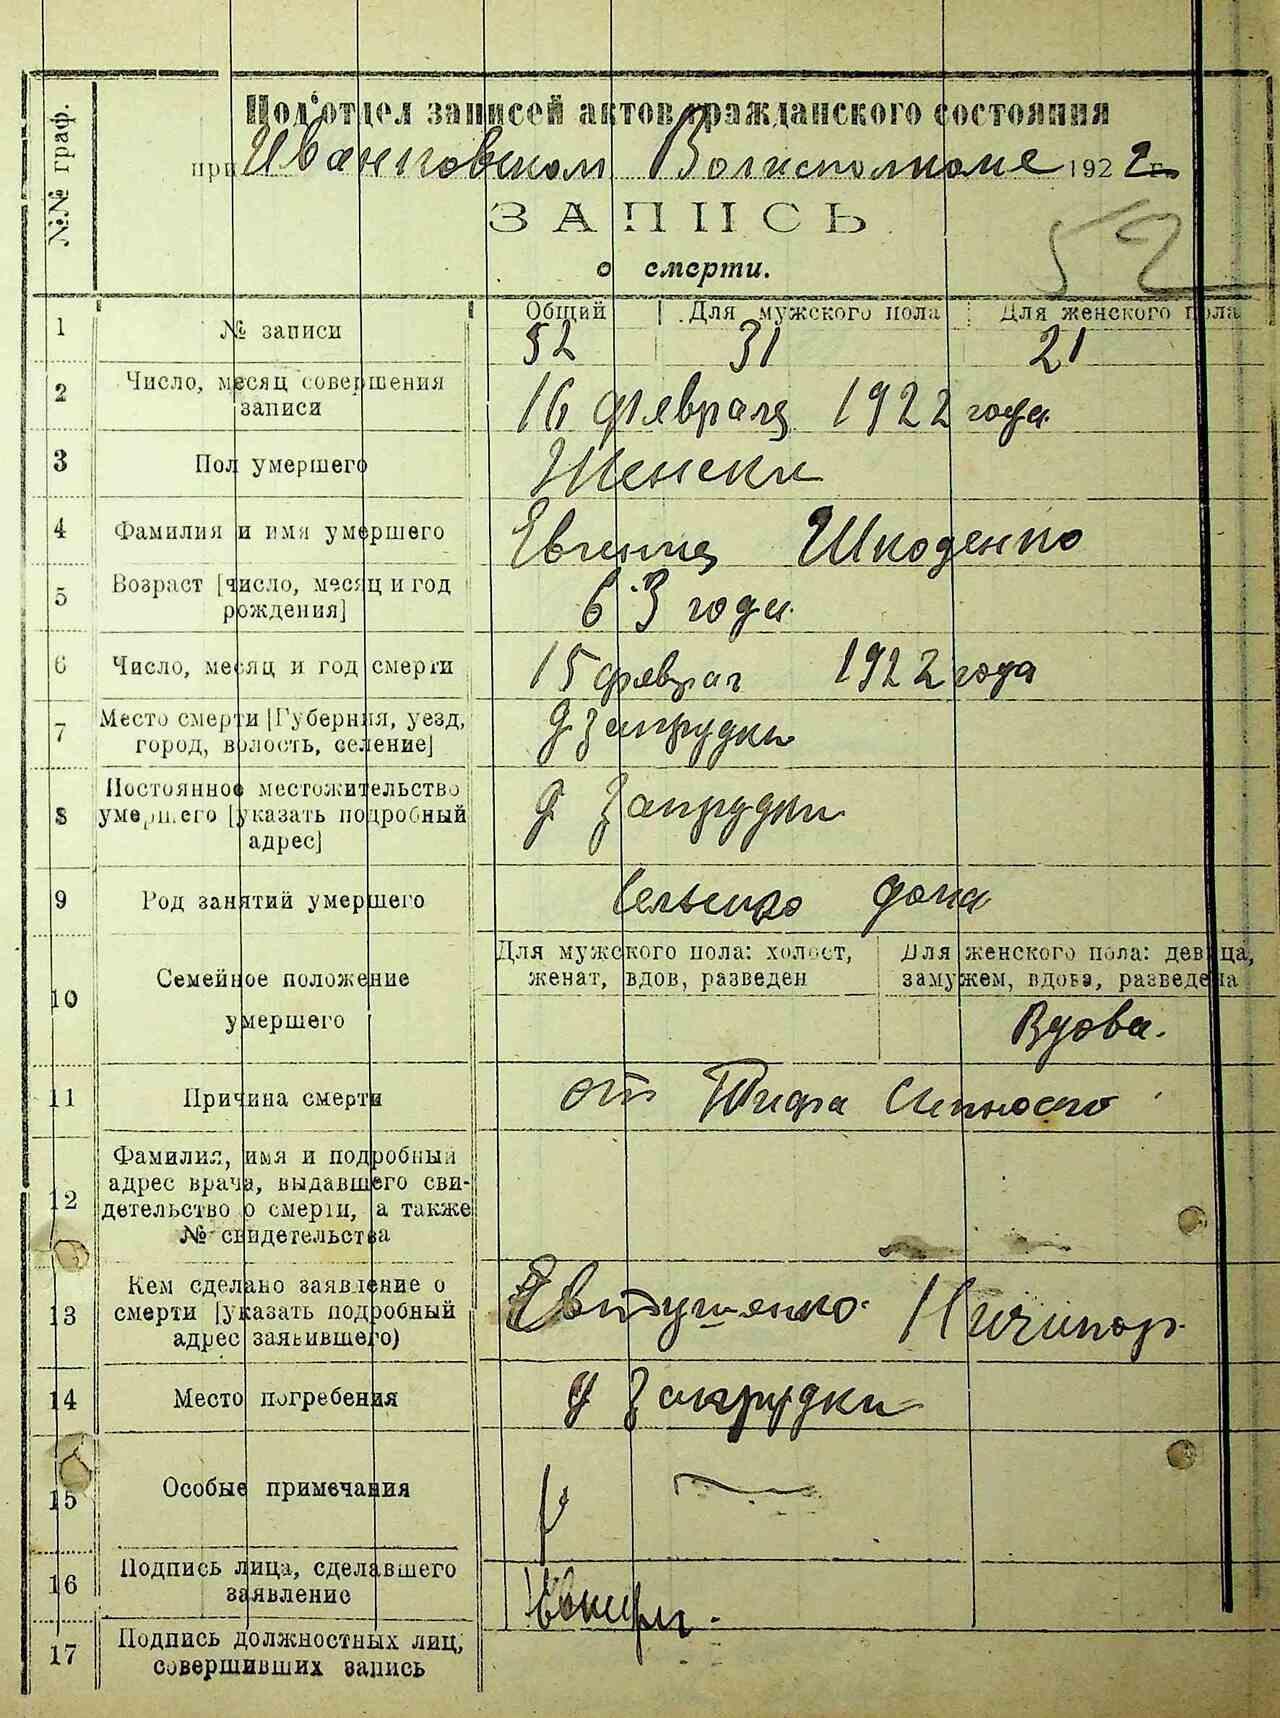 №№ граф.
Под'отдел записей актов гражданского состояния
при Иванковском Волисполкоме 1922 г.
ЗАПИСЬ
о смерти.
52
1 № записи
Общий Для мужского пола Для женского пола
52 31 21
2 Число, месяц совершения
записи
16 февраля 1922 года
3 Пол умершего
Женски
4 Фамилия и имя умершего
Евгения Шкоденко
5 Возраст [число, месяц и год
рождения]
63 годи
6 Число, месяц и год смерти
15 феврал 1922 года
7 Место смерти [Губерния, уезд,
город, волость, селение]
д Запрудки
8 Постоянное местожительство
умершего [указать подробный
адрес]
д Запрудки
9 Род занятий умершего
10 Семейное положение
умершего
Для мужского пола: холост,
женат, вдов, разведен
Для женского пола: девица,
замужем, вдова, разведена
Вдова.
11 Причина смерти
от Тифа Сипного
12 Фамилия, имя и подробный
адрес врача, выдавшего сви-
детельство о смерти, а также
№ свидетельства
13 Кем сделано заявление о
смерти [указать подробный
адрес заявившего)
Евтушенко Ничипор
14 Место погребения
д Запрудки
15 Особые примечания
16 Подпись лица, сделавшего
заявление
17 Подпись должностных лиц,
совершивших запись